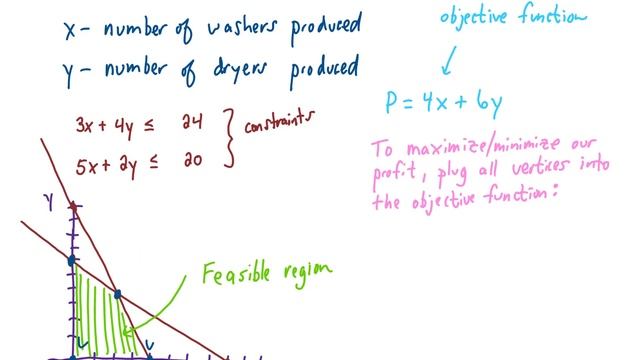 x - number of washers produced
y - number of dryers produced
3x + 4y ≤ 24
5x + 2y ≤ 20
constraints
objective function
P = 4x + 6y
To maximize/minimize our
profit, plug all vertices into
the objective function:
y
Feasible region